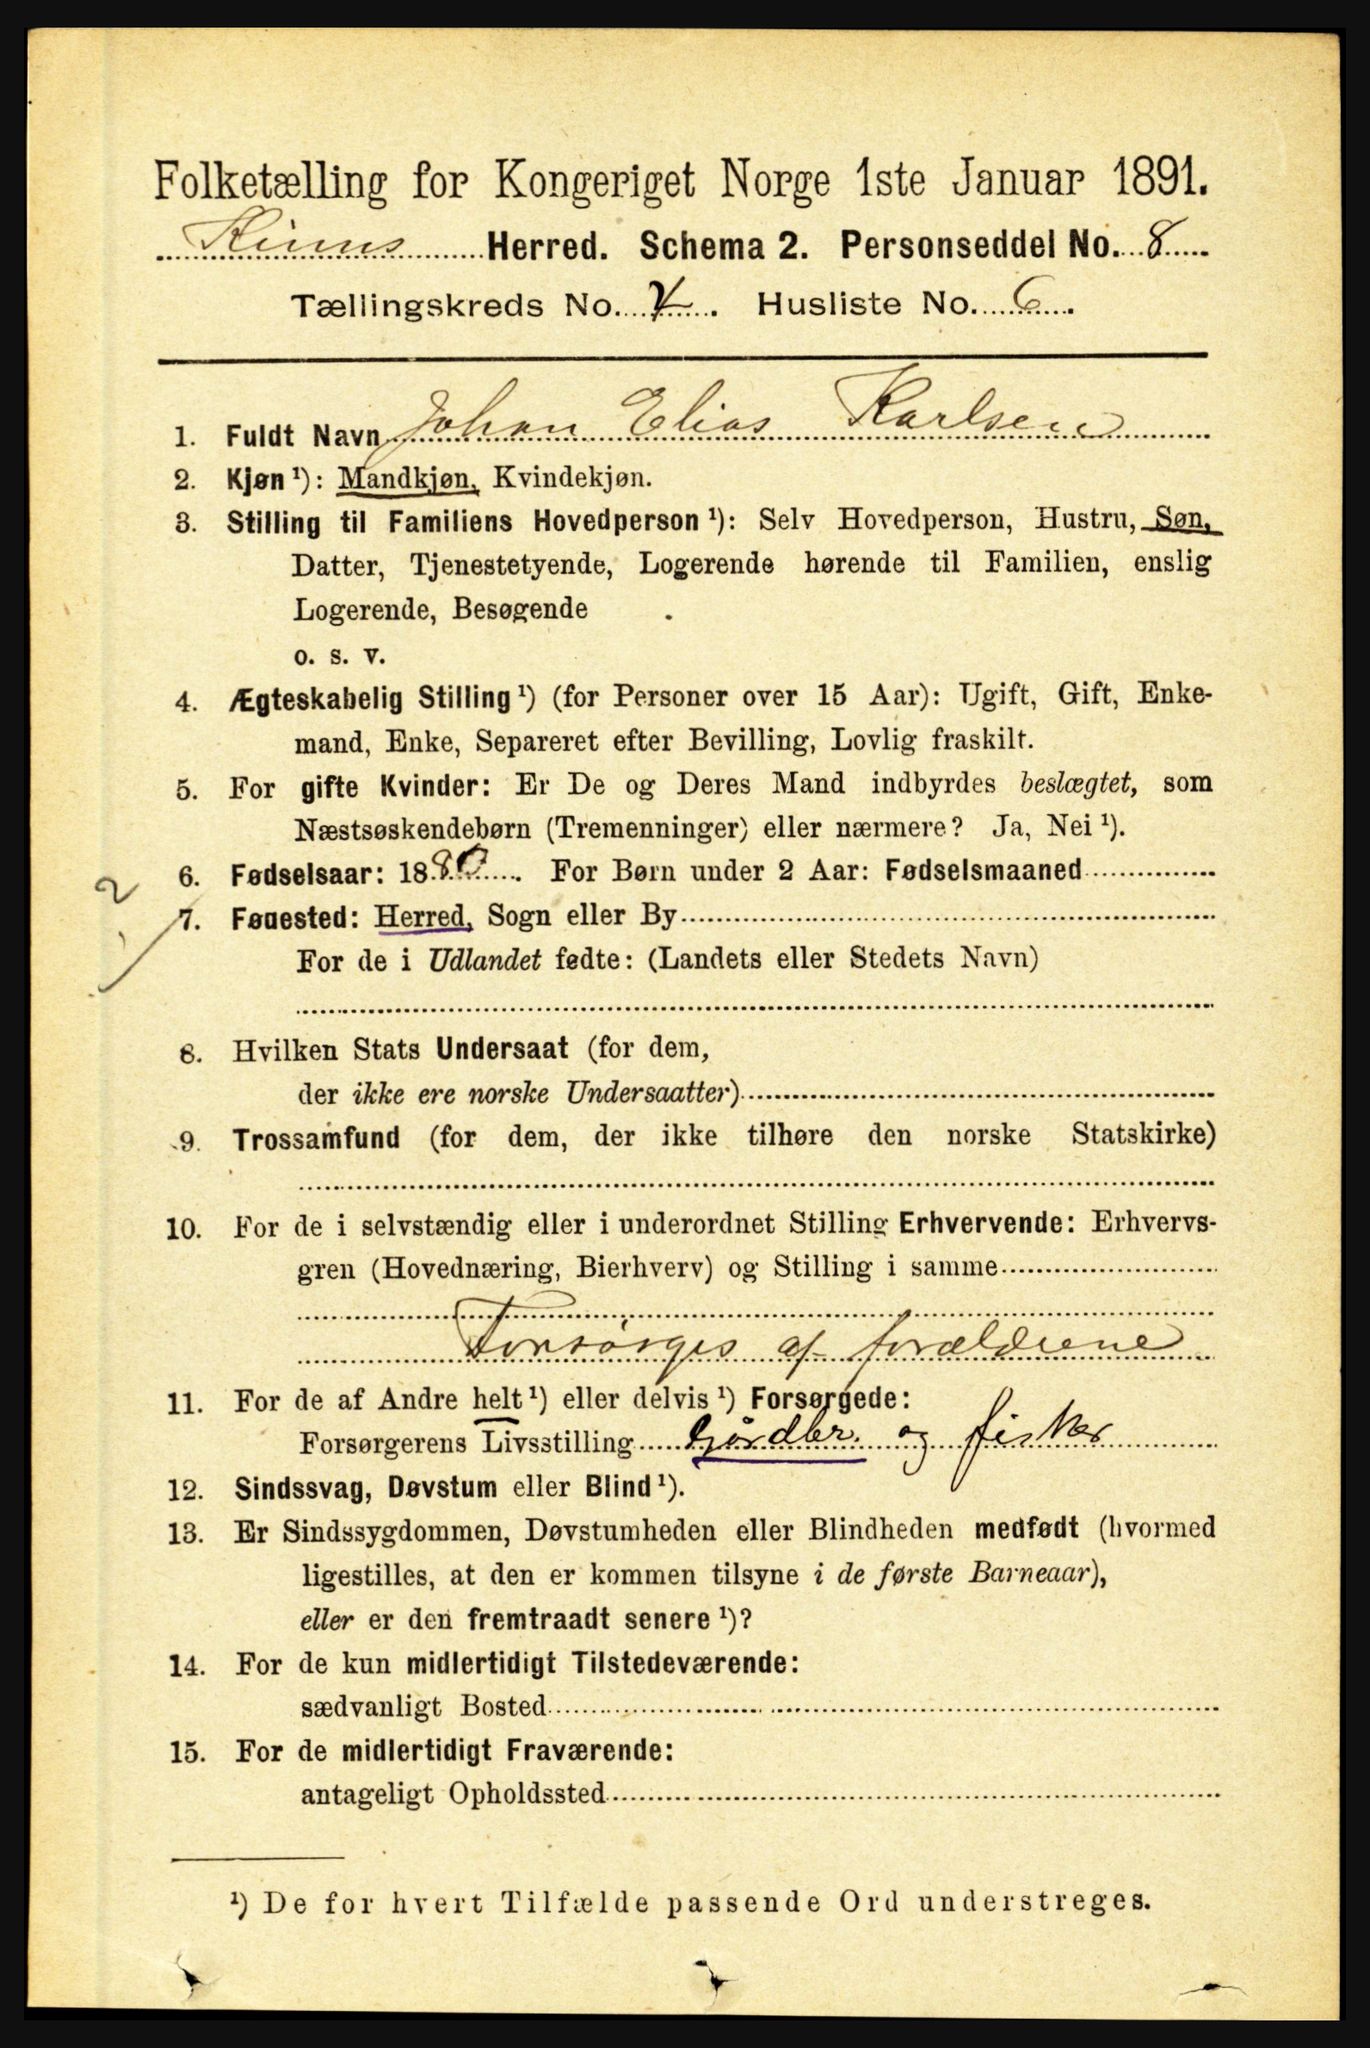 Folketælling for Kongeriget Norge 1ste Januar 1891.
Kinns Herred. Schema 2. Personseddel No. 8
Tællingskreds No. 4. Husliste No. 6.
1. Fuldt Navn Johan Elias Karlsen
2. Kjøn ¹): Mandkjøn, Kvindekjøn.
3. Stilling til Familiens Hovedperson ¹): Selv Hovedperson, Hustru, Søn,
Datter, Tjenestetyende, Logerende hørende til Familien, enslig
Logerende, Besøgende .
o. s. v.
4. Ægteskabelig Stilling ¹) (for Personer over 15 Aar): Ugift, Gift, Enke-
mand, Enke, Separeret efter Bevilling, Lovlig fraskilt.
5. For gifte Kvinder: Er De og Deres Mand indbyrdes beslægtet, som
Næstsøskendebørn (Tremenninger) eller nærmere? Ja, Nei ¹).
6. Fødselsaar: 1880. For Børn under 2 Aar: Fødselsmaaned
2
7. Fødested: Herred, Sogn eller By
For de i Udlandet fødte: (Landets eller Stedets Navn)
8. Hvilken Stats Undersaat (for dem,
der ikke ere norske Undersaatter)
9. Trossamfund (for dem, der ikke tilhøre den norske Statskirke)
10. For de i selvstændig eller i underordnet Stilling Erhvervende: Erhvervs-
gren (Hovednæring, Bierhverv) og Stilling i samme
Forsørges af forældrene
11. For de af Andre helt ¹) eller delvis ¹) Forsørgede:
Forsørgerens Livsstilling Gårdbr. og fisker
12. Sindssvag, Døvstum eller Blind ¹).
13. Er Sindssygdommen, Døvstumheden eller Blindheden medfødt (hvormed
ligestilles, at den er kommen tilsyne i de første Barneaar),
eller er den fremtraadt senere ¹)?
14. For de kun midlertidigt Tilstedeværende:
sædvanligt Bosted
15. For de midlertidigt Fraværende:
antageligt Opholdssted
¹) De for hvert Tilfælde passende Ord understreges.